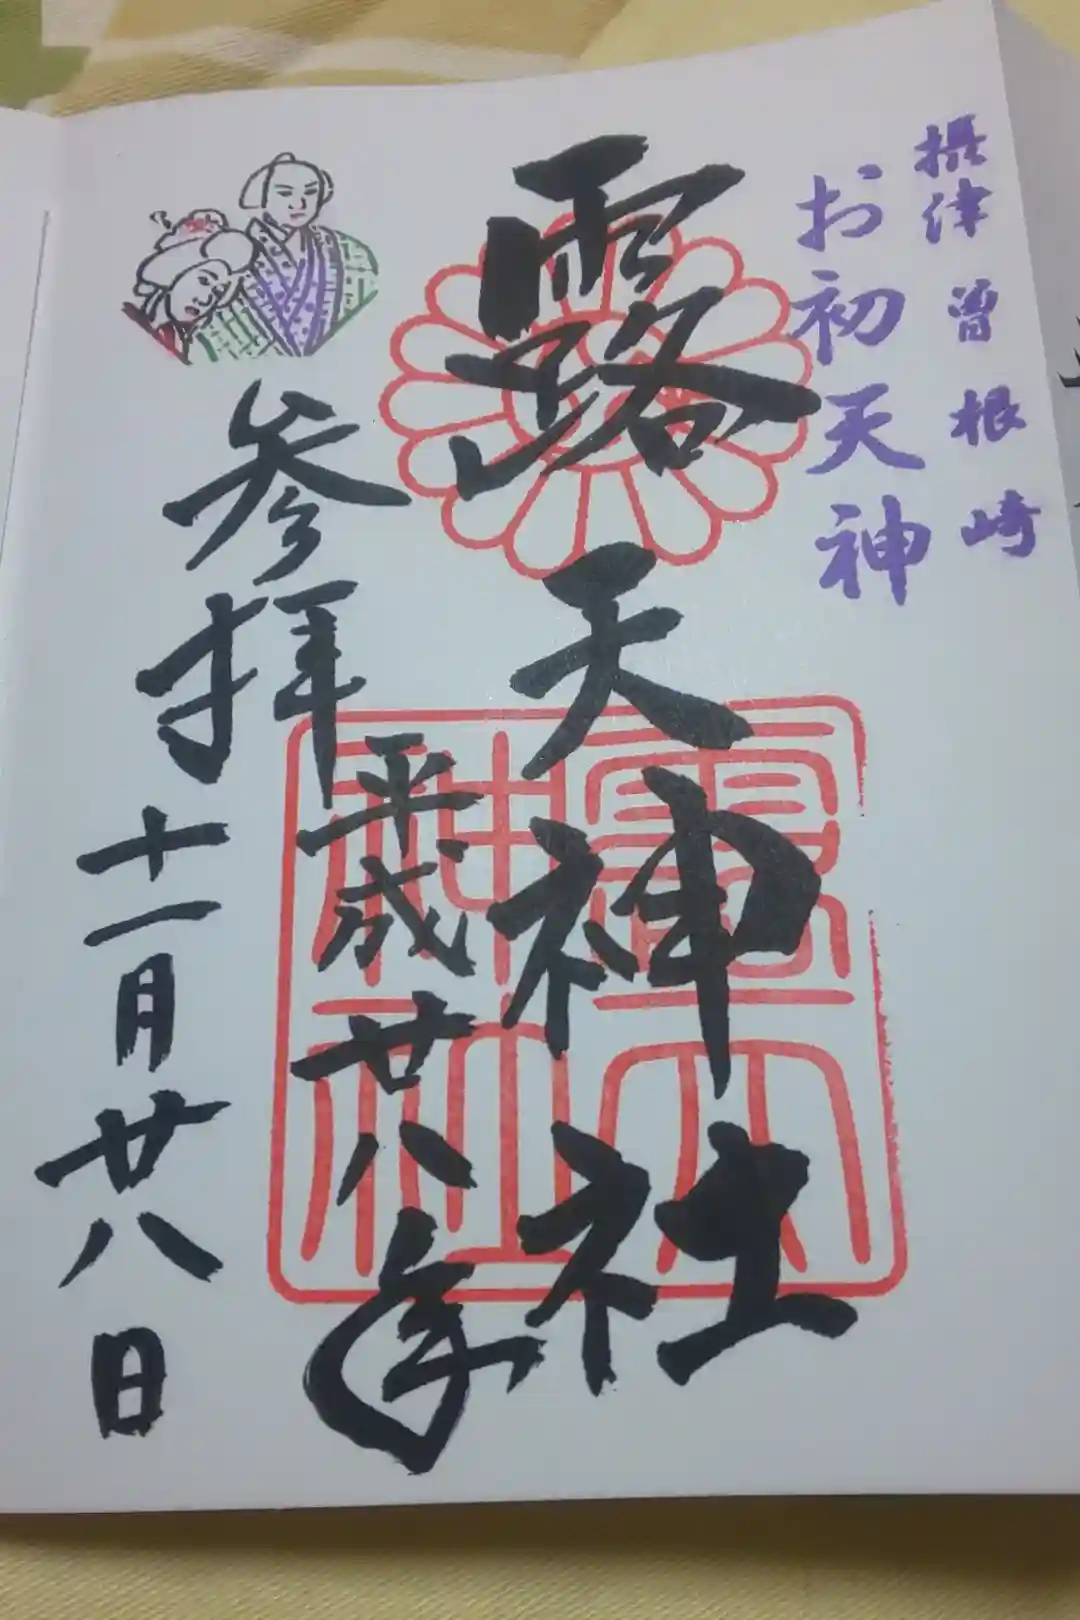 摂津 曽根崎
お初天神
露天神社
参拝
平成廿八年
十一月廿八日
露天神社